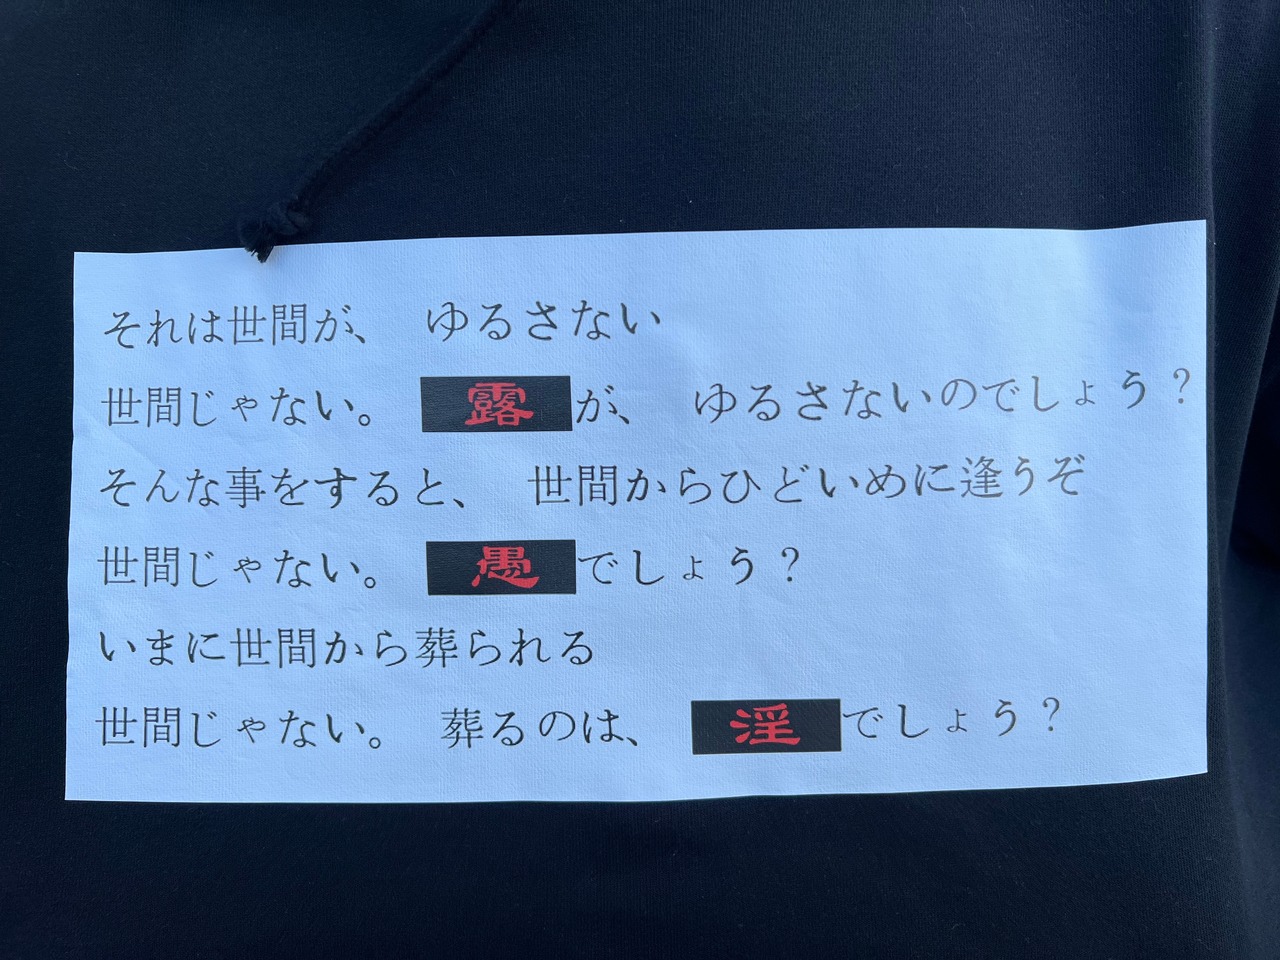 それは世間が、　ゆるさない
世間じゃない。　露が、　ゆるさないのでしょう？
そんな事をすると、　世間からひどいめに逢うぞ
世間じゃない。　愚でしょう？
いまに世間から葬られる
世間じゃない。　葬るのは、　淫でしょう？